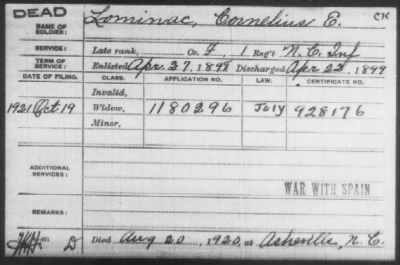 DEAD
NAME OF SOLDIER: Lominac, Cornelius E. CK
SERVICE: Late rank, Co. F, 1 Reg't N.C. Inf
TERM OF SERVICE: Enlisted Apr 27, 1898 Discharged Apr 22, 1899
DATE OF FILING. CLASS. APPLICATION NO. LAW. CERTIFICATE NO.
Invalid,
1921 Oct 19 Widow, 1180296 July 928176
Minor,
ADDITIONAL SERVICES:
WAR WITH SPAIN
REMARKS:
D Died Aug 20, 1920, at Asheville, N.C.